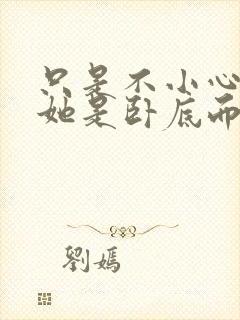 只是不小心
她是卧底而
劉嫣